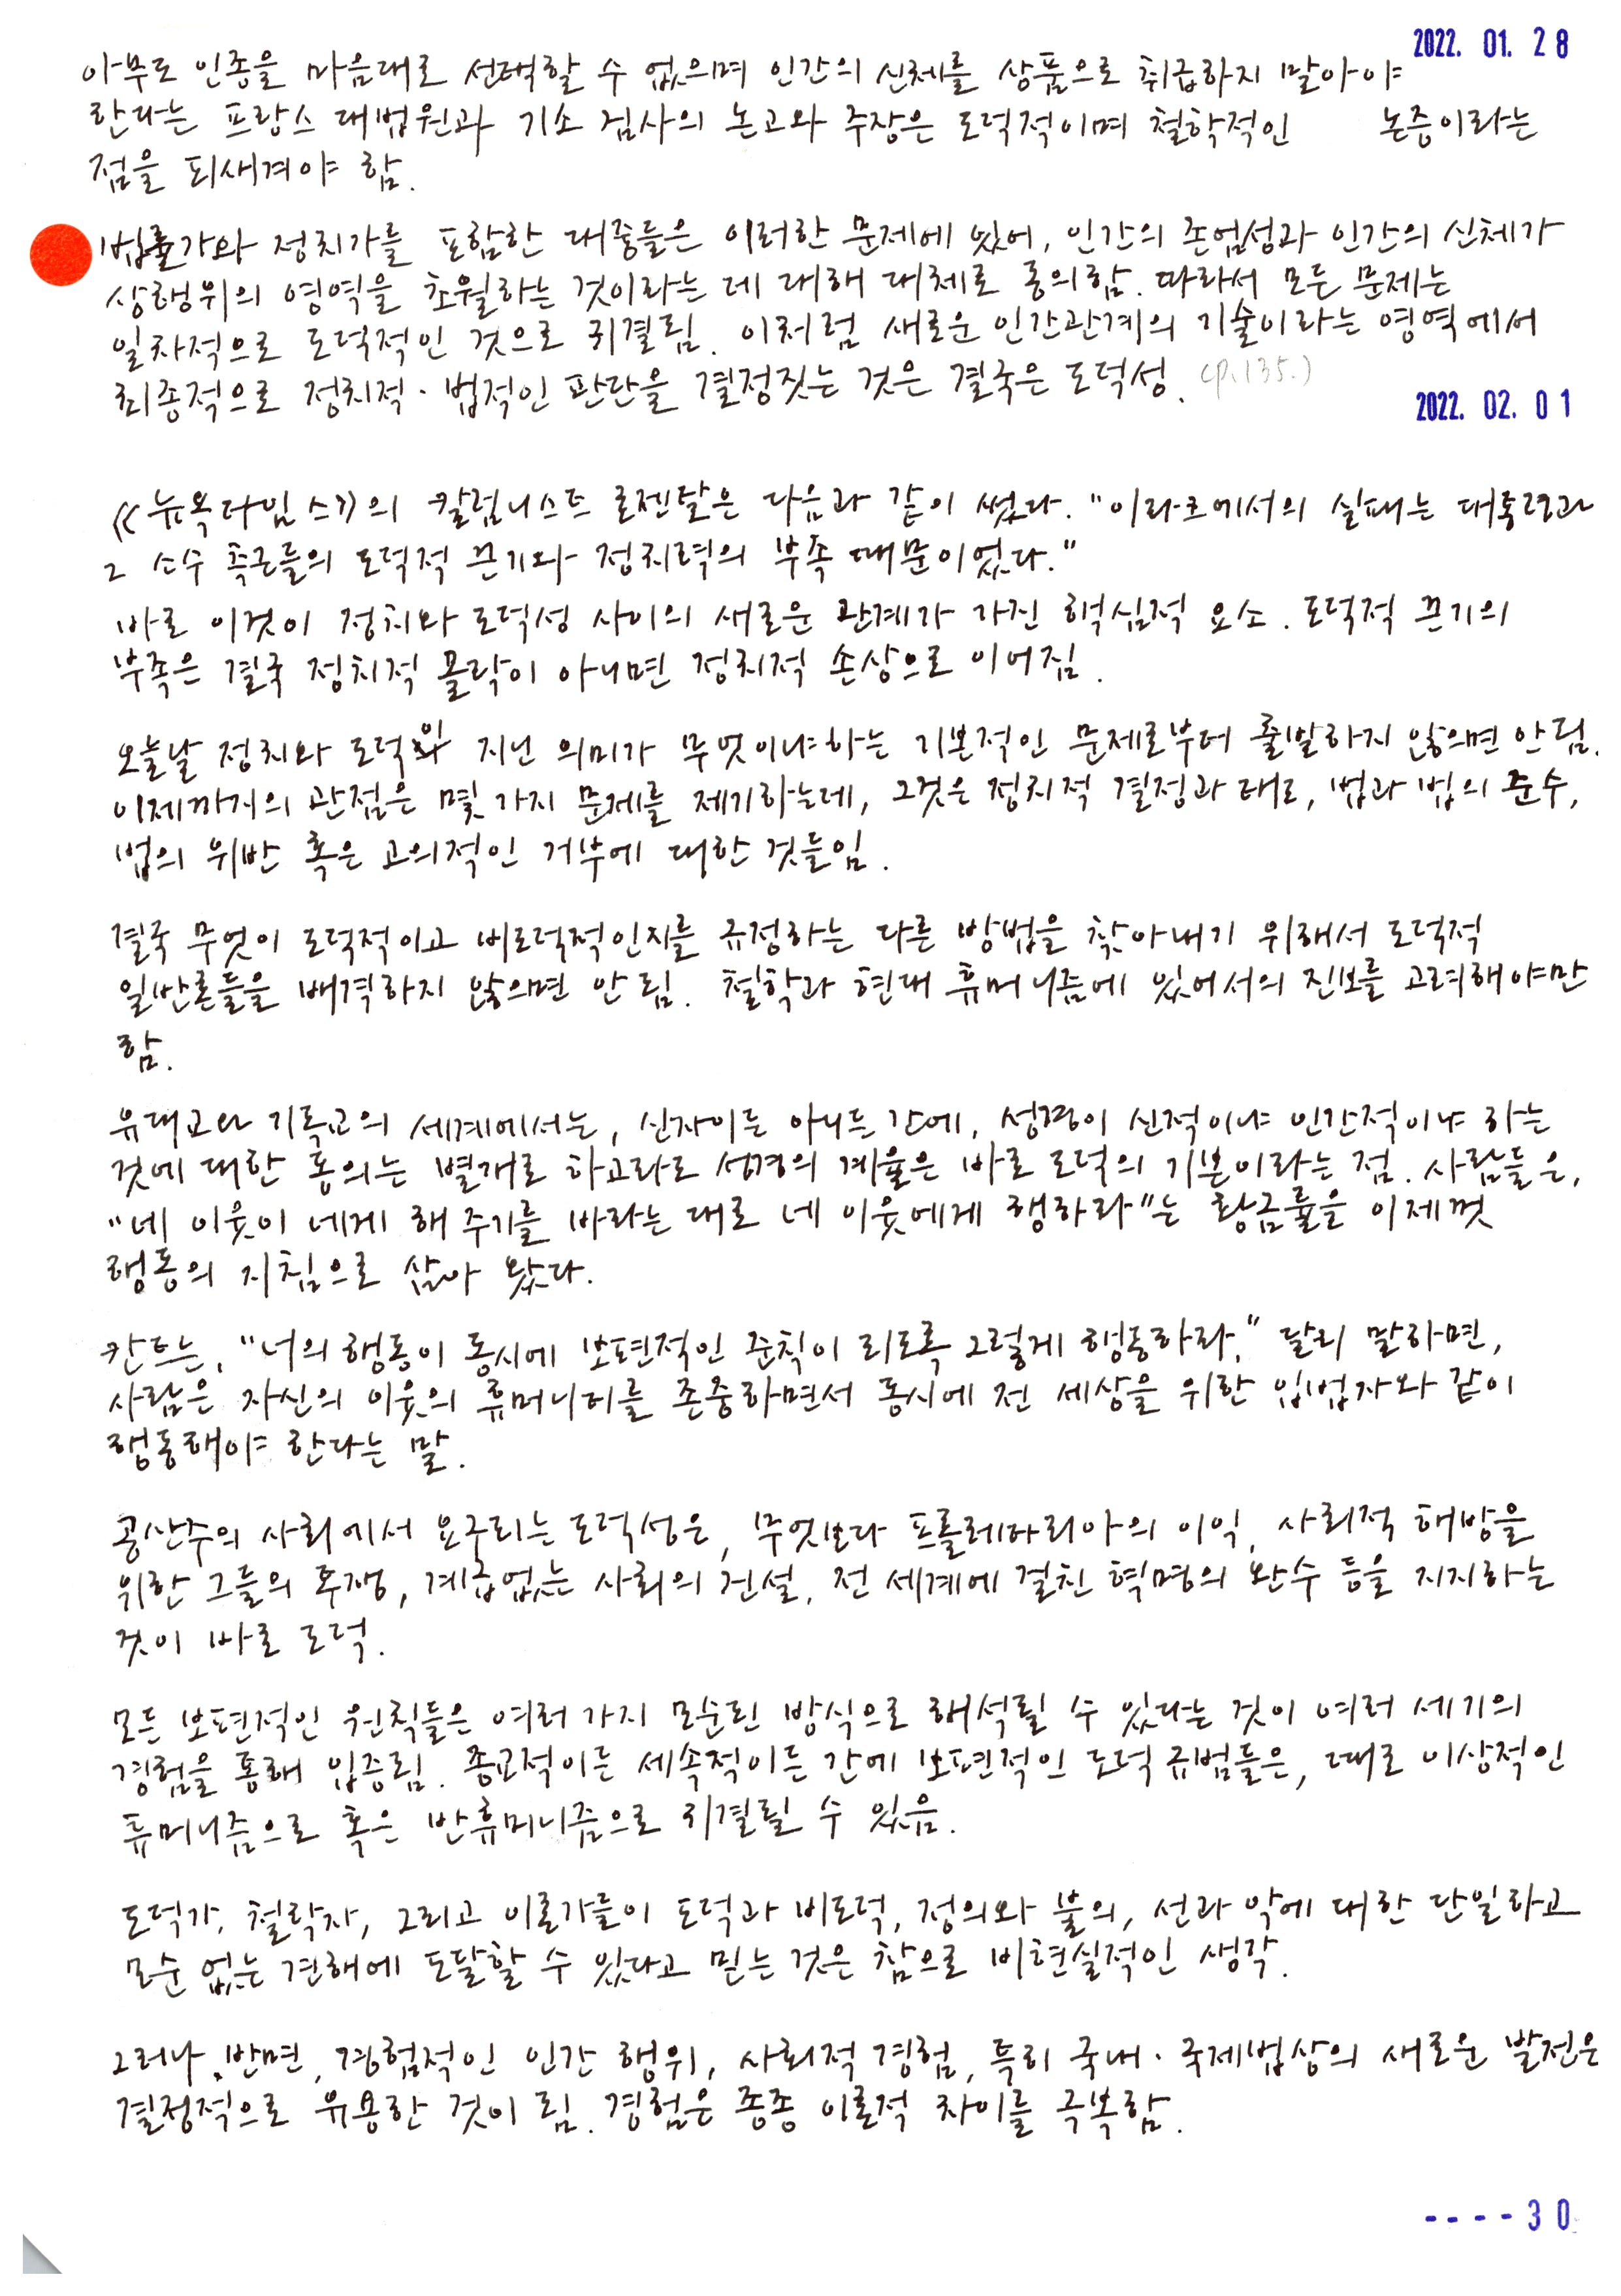 2022. 01. 28
아무도 인종을 마음대로 선택할 수 없으며 인간의 신체를 상품으로 취급하지 말아야
한다는 프랑스 대법원과 기소 검사의 논고와 주장은 도덕적이며 철학적인 논증이라는
점을 되새겨야 함.
법률가와 정치가를 포함한 대중들은 이러한 문제에 있어, 인간의 존엄성과 인간의 신체가
상행위의 영역을 초월하는 것이라는 데 대해 대체로 동의함. 따라서 모든 문제는
일차적으로 도덕적인 것으로 귀결됨. 이처럼 새로운 인간관계의 기술이라는 영역에서
최종적으로 정치적·법적인 판단을 결정짓는 것은 결국은 도덕성. (p.135.)
2022. 02. 01
《뉴욕타임스》의 칼럼니스트 로젠탈은 다음과 같이 썼다. "이라크에서의 실패는 대통령과
그 소수 측근들의 도덕적 끈기와 정치력의 부족 때문이었다."
바로 이것이 정치와 도덕성 사이의 새로운 관계가 가진 핵심적 요소. 도덕적 끈기의
부족은 결국 정치적 몰락이 아니면 정치적 손상으로 이어짐.
오늘날 정치와 도덕이 지닌 의미가 무엇이냐하는 기본적인 문제로부터 출발하지 않으면 안 됨.
이제까지의 관점은 몇 가지 문제를 제기하는데, 그것은 정치적 결정과 태도, 법과 법의 준수,
법의 위반 혹은 고의적인 거부에 대한 것들임.
결국 무엇이 도덕적이고 비도덕적인지를 규정하는 다른 방법을 찾아내기 위해서 도덕적
일반론들을 배격하지 않으면 안 됨. 철학과 현대 휴머니즘에 있어서의 진보를 고려해야만
함.
유대교와 기독교의 세계에서는, 신자이든 아니든 간에, 성경이 신적이냐 인간적이냐 하는
것에 대한 동의는 별개로 하고라도 성경의 계율은 바로 도덕의 기본이라는 점. 사람들은,
"네 이웃이 네게 해 주기를 바라는 대로 네 이웃에게 행하라"는 황금률을 이제껏
행동의 지침으로 삼아 왔다.
칸트는, "너의 행동이 동시에 보편적인 준칙이 되도록 그렇게 행동하라." 달리 말하면,
사람은 자신의 이웃의 휴머니티를 존중하면서 동시에 전 세상을 위한 입법자와 같이
행동해야 한다는 말.
공산주의 사회에서 요구되는 도덕성은, 무엇보다 프롤레타리아의 이익, 사회적 해방을
위한 그들의 투쟁, 계급없는 사회의 건설, 전 세계에 걸친 혁명의 완수 등을 지지하는
것이 바로 도덕.
모든 보편적인 원칙들은 여러 가지 모순된 방식으로 해석될 수 있다는 것이 여러 세기의
경험을 통해 입증됨. 종교적이든 세속적이든 간에 보편적인 도덕 규범들은, 때로 이상적인
휴머니즘으로 혹은 반휴머니즘으로 귀결될 수 있음.
도덕가, 철학자, 그리고 이론가들이 도덕과 비도덕, 정의와 불의, 선과 악에 대한 단일하고
모순 없는 견해에 도달할 수 있다고 믿는 것은 참으로 비현실적인 생각.
그러나, 반면, 경험적인 인간 행위, 사회적 경험, 특히 국내·국제법상의 새로운 발전은
결정적으로 유용한 것이 됨. 경험은 종종 이론적 차이를 극복함.
----30